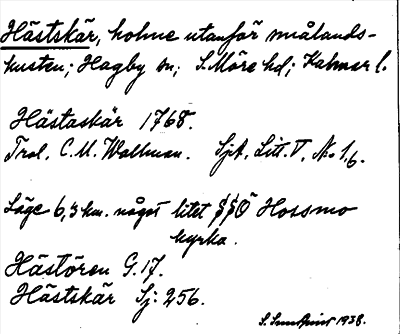 Hästskär, holme utanför smålands-
kusten; Hagby sn; S. Möre hd; Kalmar l.
Hästaskär 1768.
Trol. C. M. Wallman. SjA, Litt. V, No 1,6.
Läge 6,3 km. något litet SSÖ Hossmo
kyrka.
Hästören G. 17.
Hästskär Sj: 256.
S. 1938.